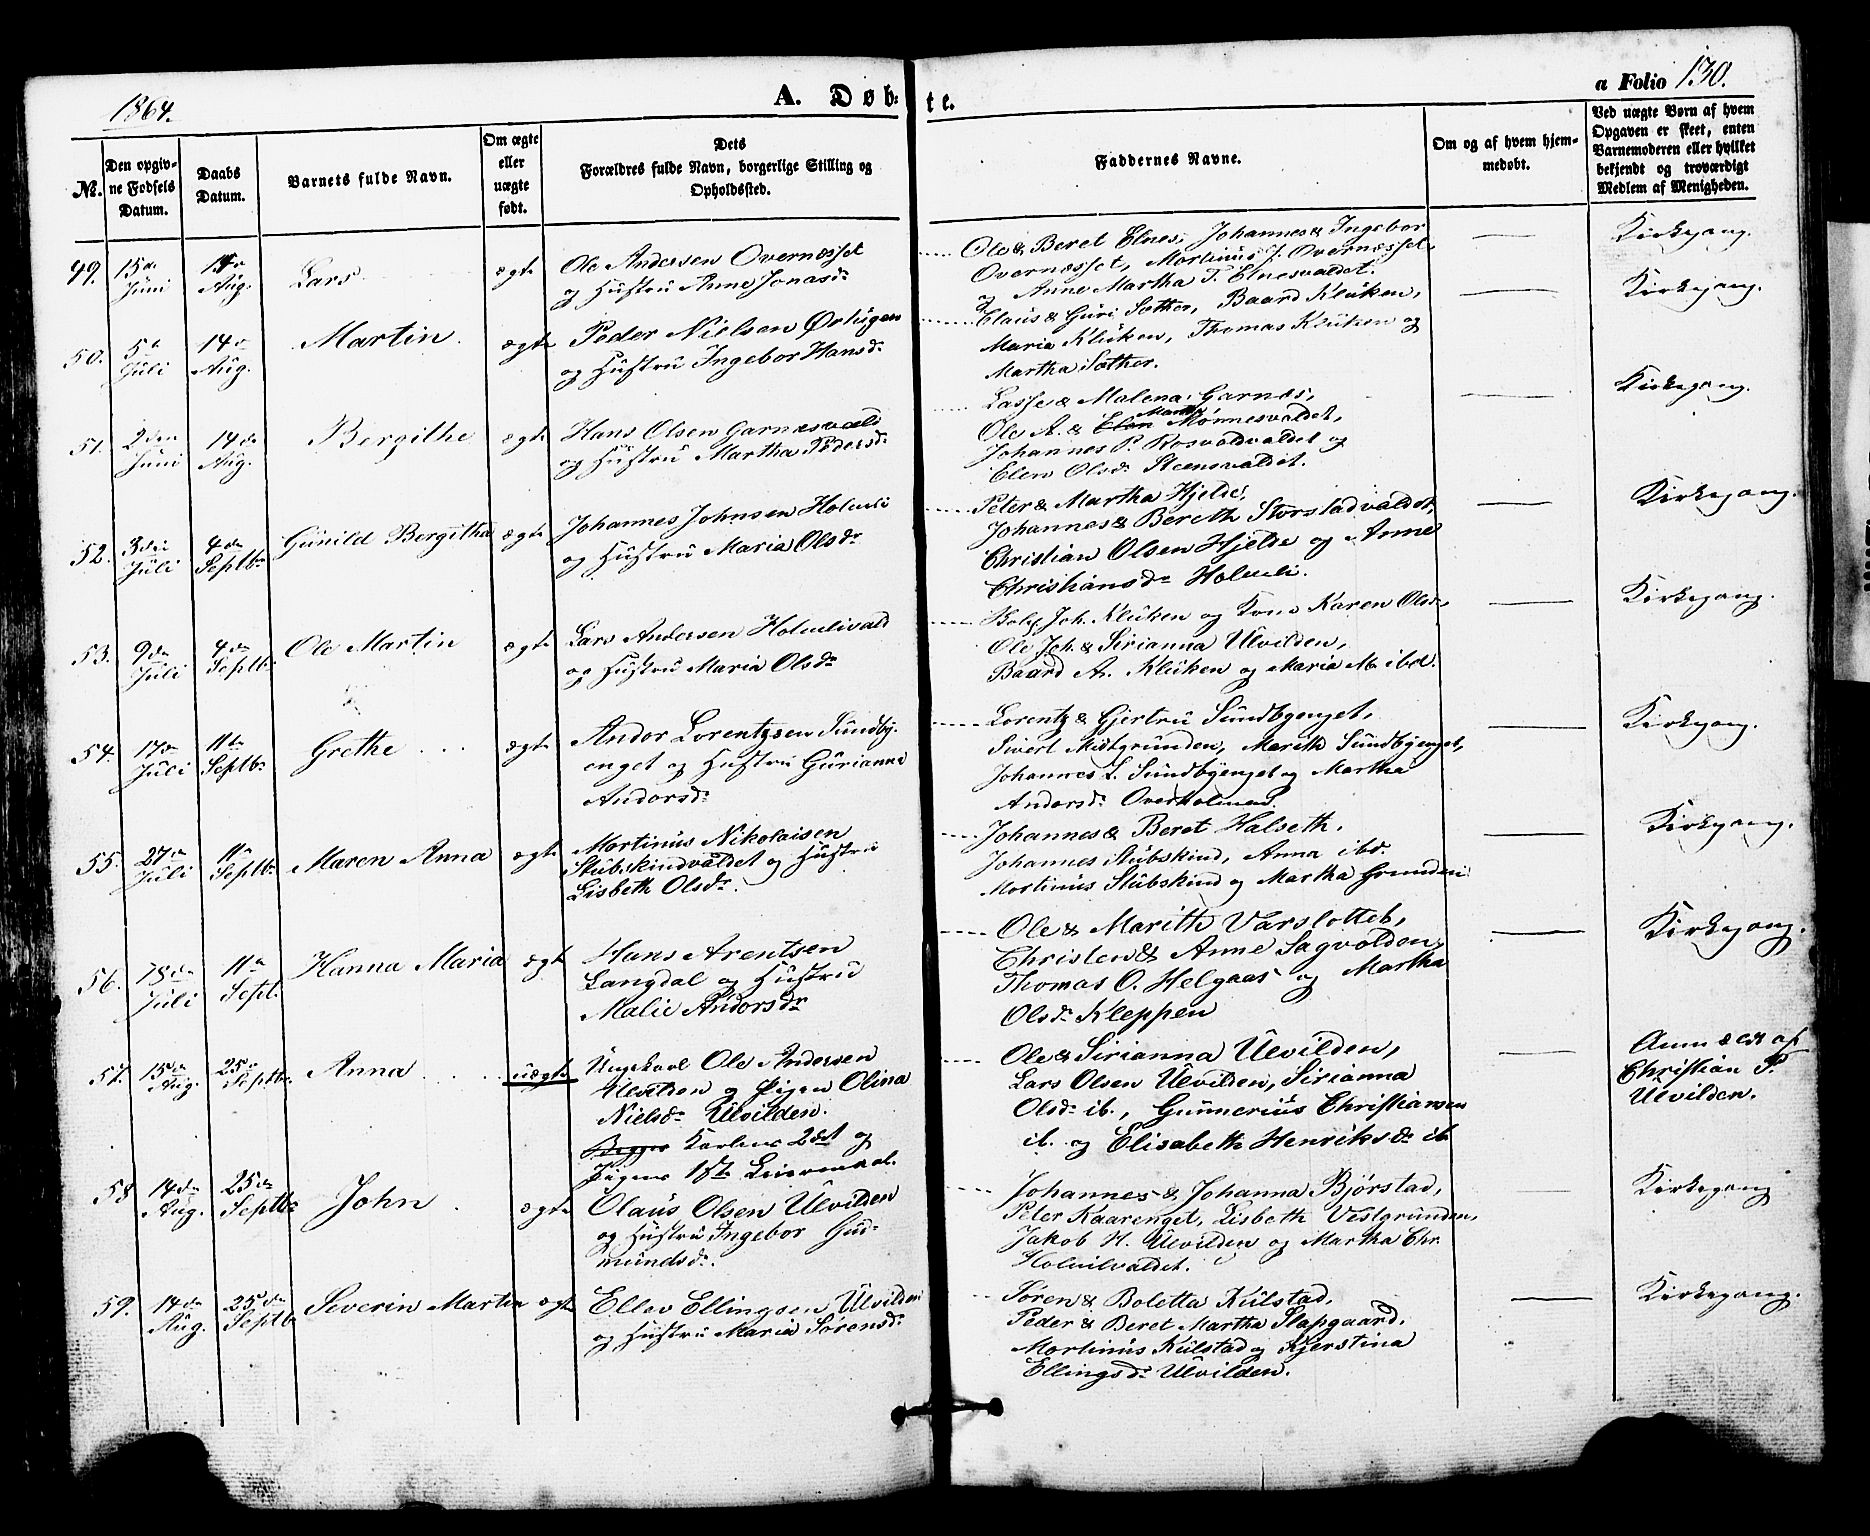 1864.
A. Døb-
te.
a Folio 130.
№.
Den opgiv-
ne Fødsels
Datum.
Daabs
Datum.
Barnets fulde Navn.
Om ægte
eller
uægte
født.
Dets
Forældres fulde Navn, borgerlige Stilling og
Opholdssted.
Faddernes Navne.
Om og af hvem hjem-
medøbt.
Ved uægte Børn af hvem
Opgaven er skeet, enten
Barnemoderen eller hvilket
bekjendt og troværdigt
Medlem af Menigheden.
49.
15de
Juni
14de
Aug.
Lars
ægte
Ole Andersen Overnesset
og Hustru Anne Jonasdr
Ole & Beret Elnes, Johannes & Ingebor
Overnæsset, Martinus J. Overnæsset
og Anne Martha T. Elnesvaldet.
Kirkegang.
50.
5te
Juli
14de
Aug.
Martin
ægte
Peder Nielsen Østugen
og Hustru Ingebor Hansdr
Claus & Guri Sæther, Baard Klüken,
Maria Klüken, Thomas Klüken og
Martha Sæther.
Kirkegang.
51.
2den
Juni
14de
Aug.
Bergithe
ægte
Hans Olsen Garnæsvald
og Hustru Martha Pedersdr
Lasse & Malena Garnæs,
Ole A. & Martha Mønnesvaldet,
Johannes P. Rosvoldvaldet og
Elen Olsdr Steensvaldet.
Kirkegang.
52.
3die
Juli
4de
Septbr
Gunild Bergitha
ægte
Johannes Johnsen Holmli
og Hustru Maria Olsdr
Peter & Martha Hjelde,
Johannes & Bereth Storstadvaldet,
Christian Olsen Hjelde og Anne
Christiansdr Holmli.
Kirkegang.
53.
9de
Juli
4de
Septbr
Ole Martin
ægte
Lars Andersen Holmlivald
og Hustru Maria Olsdr
Joh. Klüken og Kone Karen Olsdr,
Ole Joh. & Sirianna Ulvilden,
Baard A. Klüken og Maria M. ibd.
Kirkegang.
54.
17de
Juli
11te
Septbr
Grethe
ægte
Andor Lorentzsen Sundby-
enget og Hustru Gurianna
Andorsdr
Lorentz & Gjertru Sundbyenget,
Sivert Midtgrunden, Marith Sundbyenget,
Johannes L. Sundbyenget og Martha
Andorsdr Overholmen.
Kirkegang.
55.
27de
Juli
11te
Septbr
Maren Anna
ægte
Martinus Nikolaisen
Stubskindvaldet og Hustru
Lisbeth Olsdr.
Johannes & Beret Halseth,
Johannes Stubskind, Anna ibd.
Martinus Stubskind og Martha Grunden
Kirkegang.
56.
18de
Juli
11te
Sept.
Hanna Maria
ægte
Hans Arentsen
Langdal og Hustru
Malie Andorsdr
Ole & Marith Varslottet,
Christen & Anne Sagvolden
Thomas O. Helgaas og Martha
Olsdr Kleppen
Kirkegang.
57.
15de
Aug.
25de
Septbr
Anna
uægte
Ungekarl Ole Andersen
og Pigen Olina
Nielsdr Ulvilden.
Begges Karlens 2det og
Pigens 1ste Leiermaal.
Ole & Sirianna Ulvilden,
Lars Olsen Ulvilden, Sirianna
Olsdr ib., Gunnerius Christiansen
ib. og Elisabeth Henriksdr ib
Anmeldt af
Christian P.
Ulvilden.
58
14de
Aug.
25de
Septbr
John
ægte
Olaus Olsen Ulvilden
og Hustru Ingebor Gud-
mundsdr.
Johannes & Johanna Bjørstad,
Peter Kaarenget, Lisbeth Vestgrunden,
Jakob H. Ulvilden og Martha Chr.
Holmlivaldet.
Kirkegang
59.
14de
Aug.
25de
Septbr
Severin Martin
ægte
Ellev Ellingsen Ulvilden
og Hustru Maria Sørensdr
Søren & Boletta Kulstad,
Peder & Beret Martha Slapgaard,
Martinus Kulstad og Kjerstina
Ellingsdr Ulvilden.
Kirkegang.